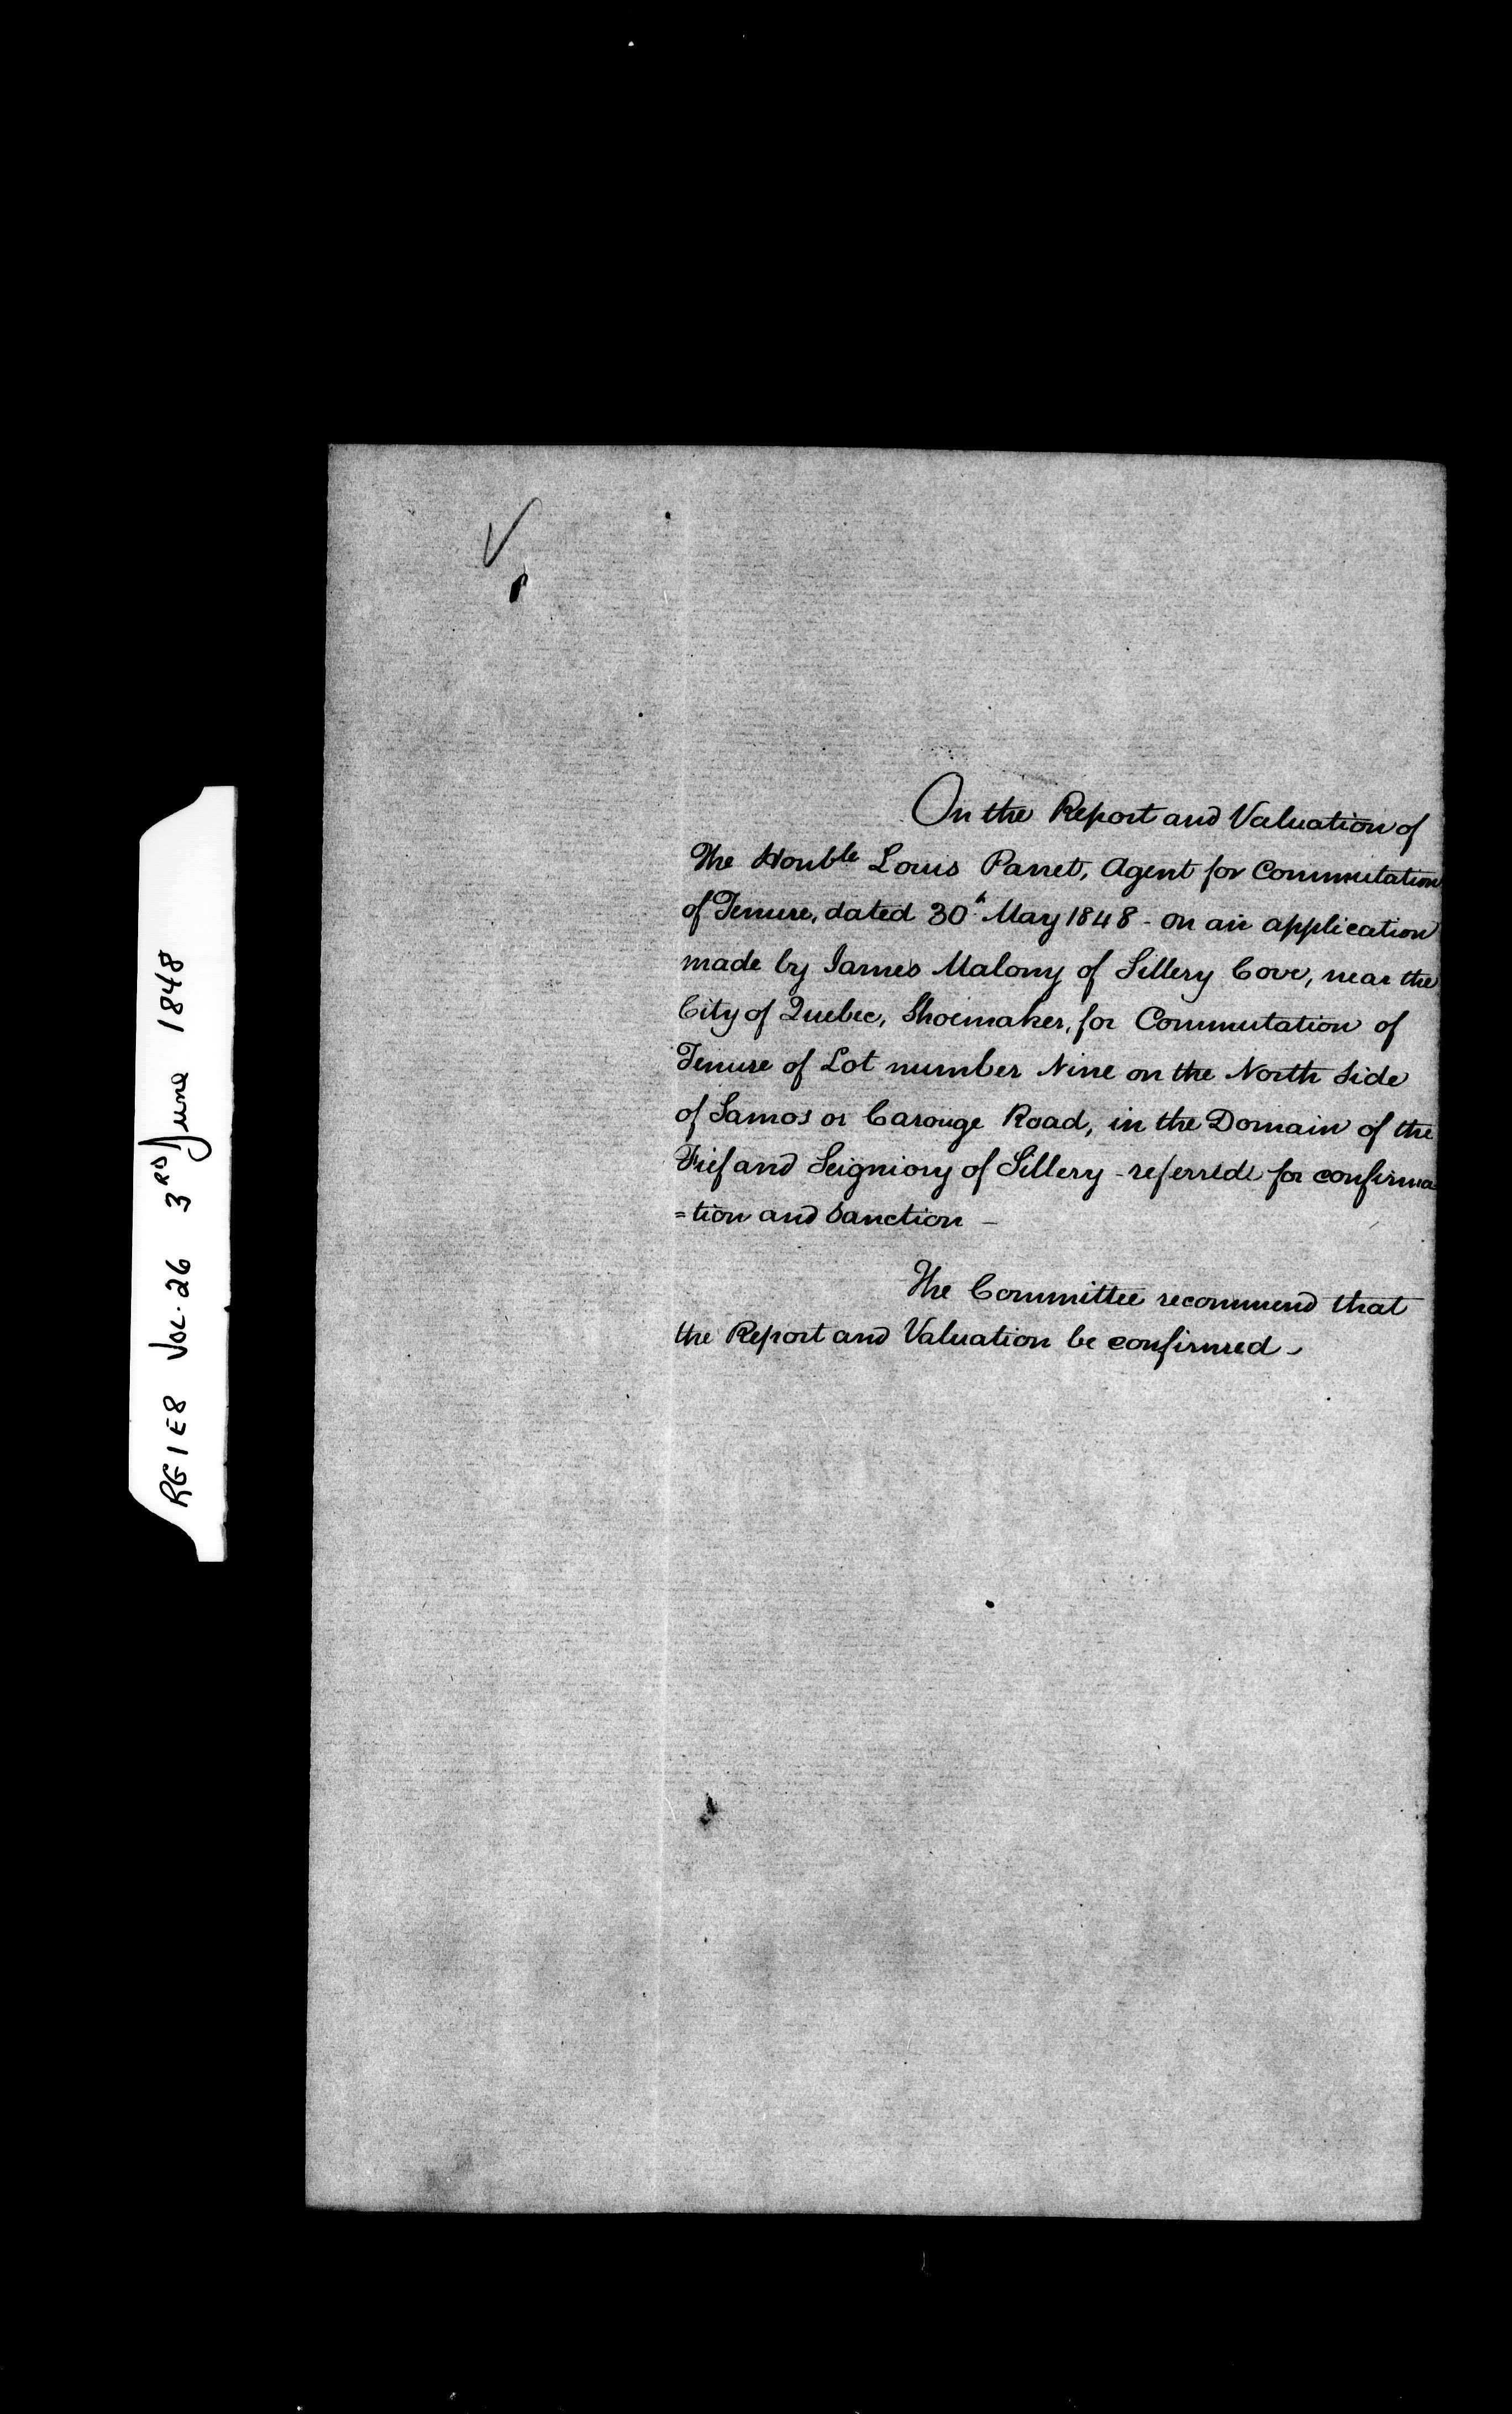 RG1E8 VOL.26 3RD June 1848
On the Report and Valuation of
The Honble Louis Panet, Agent for Commutation
of Tenure, dated 30th May 1848 - on an application
made by James Malony of Sillery Cove, near the
City of Quebec, Shoemaker, for Commutation of
Tenure of Lot number Nine on the North Side
of Samos or Carouge Road, in the Domain of the
Fief and Seigniory of Sillery - referred for confirma-
=tion and Sanction -
The Committee recommend that
the Report and Valuation be confirmed -